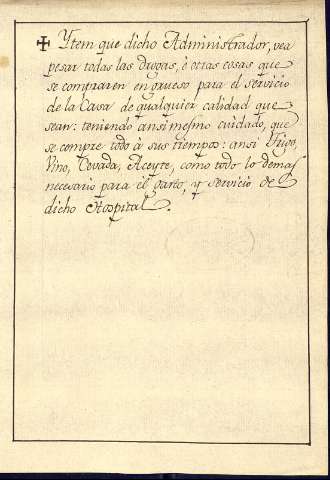 ✠ Ytem que dicho Administrador, vea
pesar todas las drogas, ò otras cosas que
se compraren en grueso para el servicio
de la Casa de qualquier calidad que
sean: teniendo ansi mesmo cuidado, que
se compre todo à sus tiempos: ansi Trigo,
Vino, Cevada, Aceyte, como todo lo demas
necesario para el gasto, y servicio de
dicho Hospital.